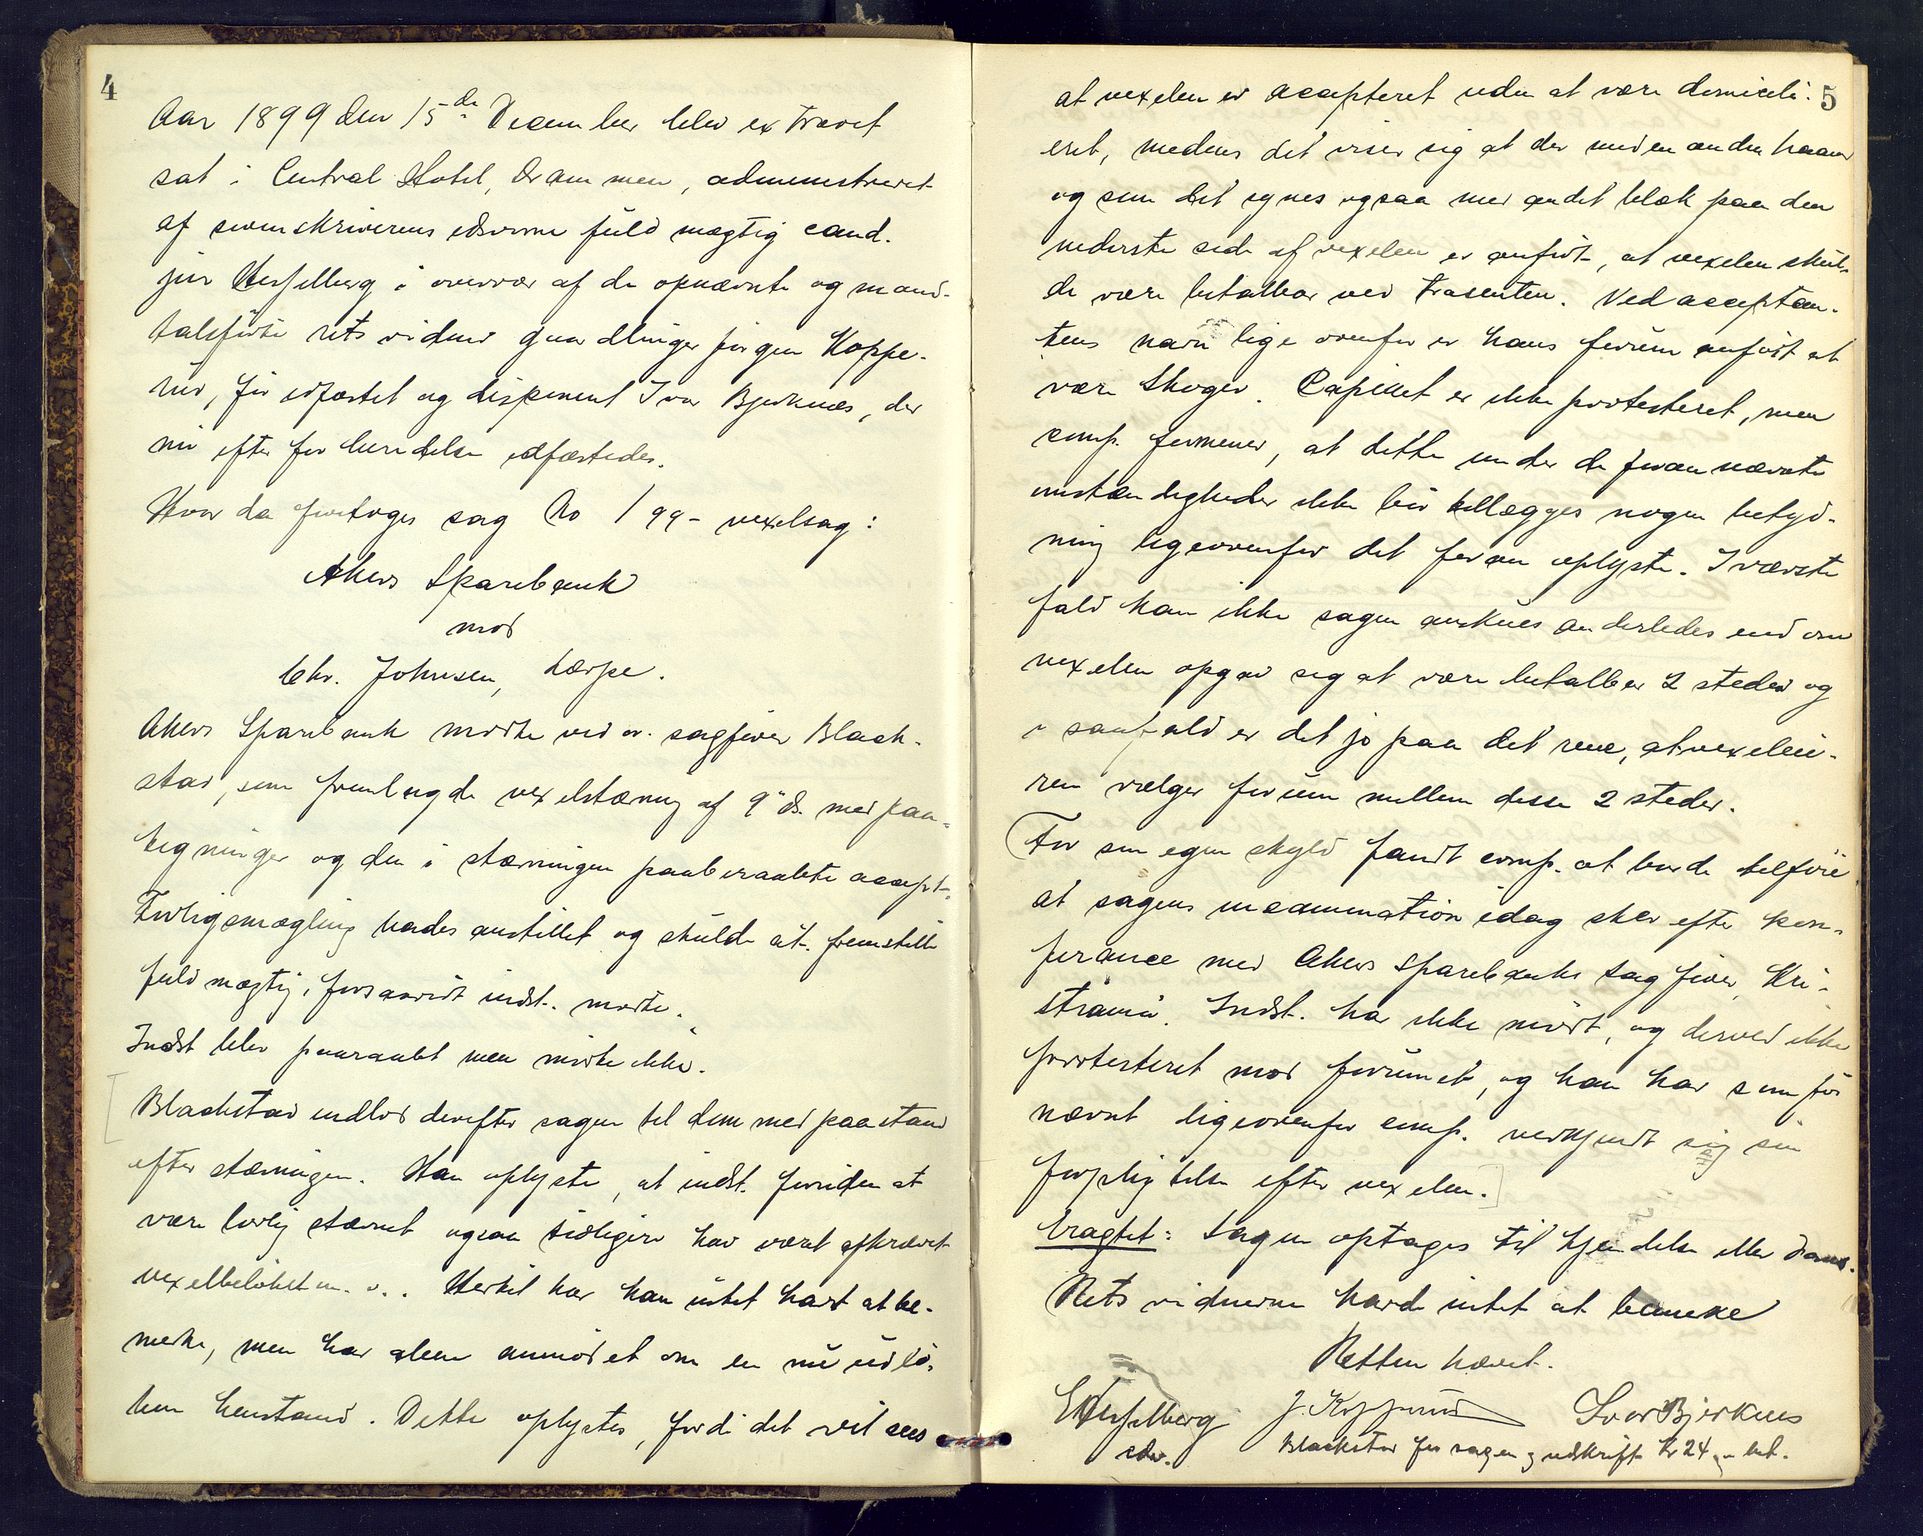 4
Aar 1899 den 15de December blev extraret
sat i Central Hotel, Drammen, administreret
af sorenskriverens edsvorne fuldmægtig cand.
jur Hesselberg i overvær af de opnævnte og mand-
talsførte retsvidner gaardbruger Jørgen Koppe-
rud, før edfæstet og disponent Ivar Bjerknes, der
nu efter forberedelse edfæstedes.
Hvor da foretoges sag No 1/99 - vexelsag:
Akers Sparebank
mod
Chr. Johnsen, Lærpe.
Akers Sparebank mødte ved o. sagfører Black-
stad, som fremlagde vexelstævning af 9 ds. med paa-
tegninger og den i stævningen paaberaabte accept.
Forligsmægling havdes anstillet og skulde cit. fremstille
fuldmægtig, forsaavidt indst. mødte.
Indst blev paaraabt men mødte ikke.
Blackstad indlod derefter sagen til dom med paastand
efter stævningen. Han oplyste, at indst. foruden at
være lovlig stævnet ogsaa tidligere har været afkrævet
vexelbeløbet m. v.. Hertil har han intet havt at be-
mærke, men har alene anmodet om en nu udlø-
ben henstand. Dette oplystes, fordi det vil sees
5
at vexelen er accepteret uden at være domicili-
eret, medens det viser sig at der med en anden haand
og som det synes ogsaa med andet blæk paa den
nederste side af vexelen er anført, at vexelen skul-
de være betalbar ved trasenten. Ved acceptan-
tens navn lige ovenfor er hans forum anført at
være Skoger. Capillet er ikke protesteret, men
comp. formener, at dette under de foran nævnte
omstændigheder ikke bør tillægges nogen betyd-
ning ligeoverfor det foran oplyste. I værste
fald kan ikke sagen anskues anderledes end om
vexelen opgav sig at være betalbar 2 steder og
i saafald er det jo paa det rene, at vexeleie-
ren vælger forum mellem disse 2 steder.
For sin egen skyld fandt comp. at burde tilføie
at sagens incamination idag sker efter kon-
ferance med Akers Sparebanks sagfører, Kri-
stiania. Indst. har ikke mødt, og derved ikke
protesteret mod forumet, og han har som før
nævnt ligeoverfor comp. vedkjendt sig sin
forpligtelse efter vexelen.
bragtet: Sagen optages til kjendelse eller dom.
Retsvidnerne havde intet at bemerke
Retten hævet.
E Hesselberg J. Kopperud Ivar Bjerknes
edsv. Blackstad for sagen og udskrift kr 24 bet.